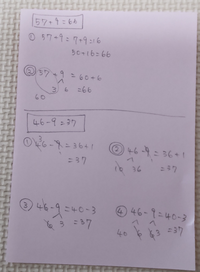 57+9=66
① 57+9=7+9=16
50+16=66
② 57+9=60+6
3 6 =66
60
46-9=37
① 46-9=36+1
=37
② 46-9=36+1
10 36 =37
③ 46-9=40-3
6 3 =37
④ 46-9=40-3
40 6 6 3 =37